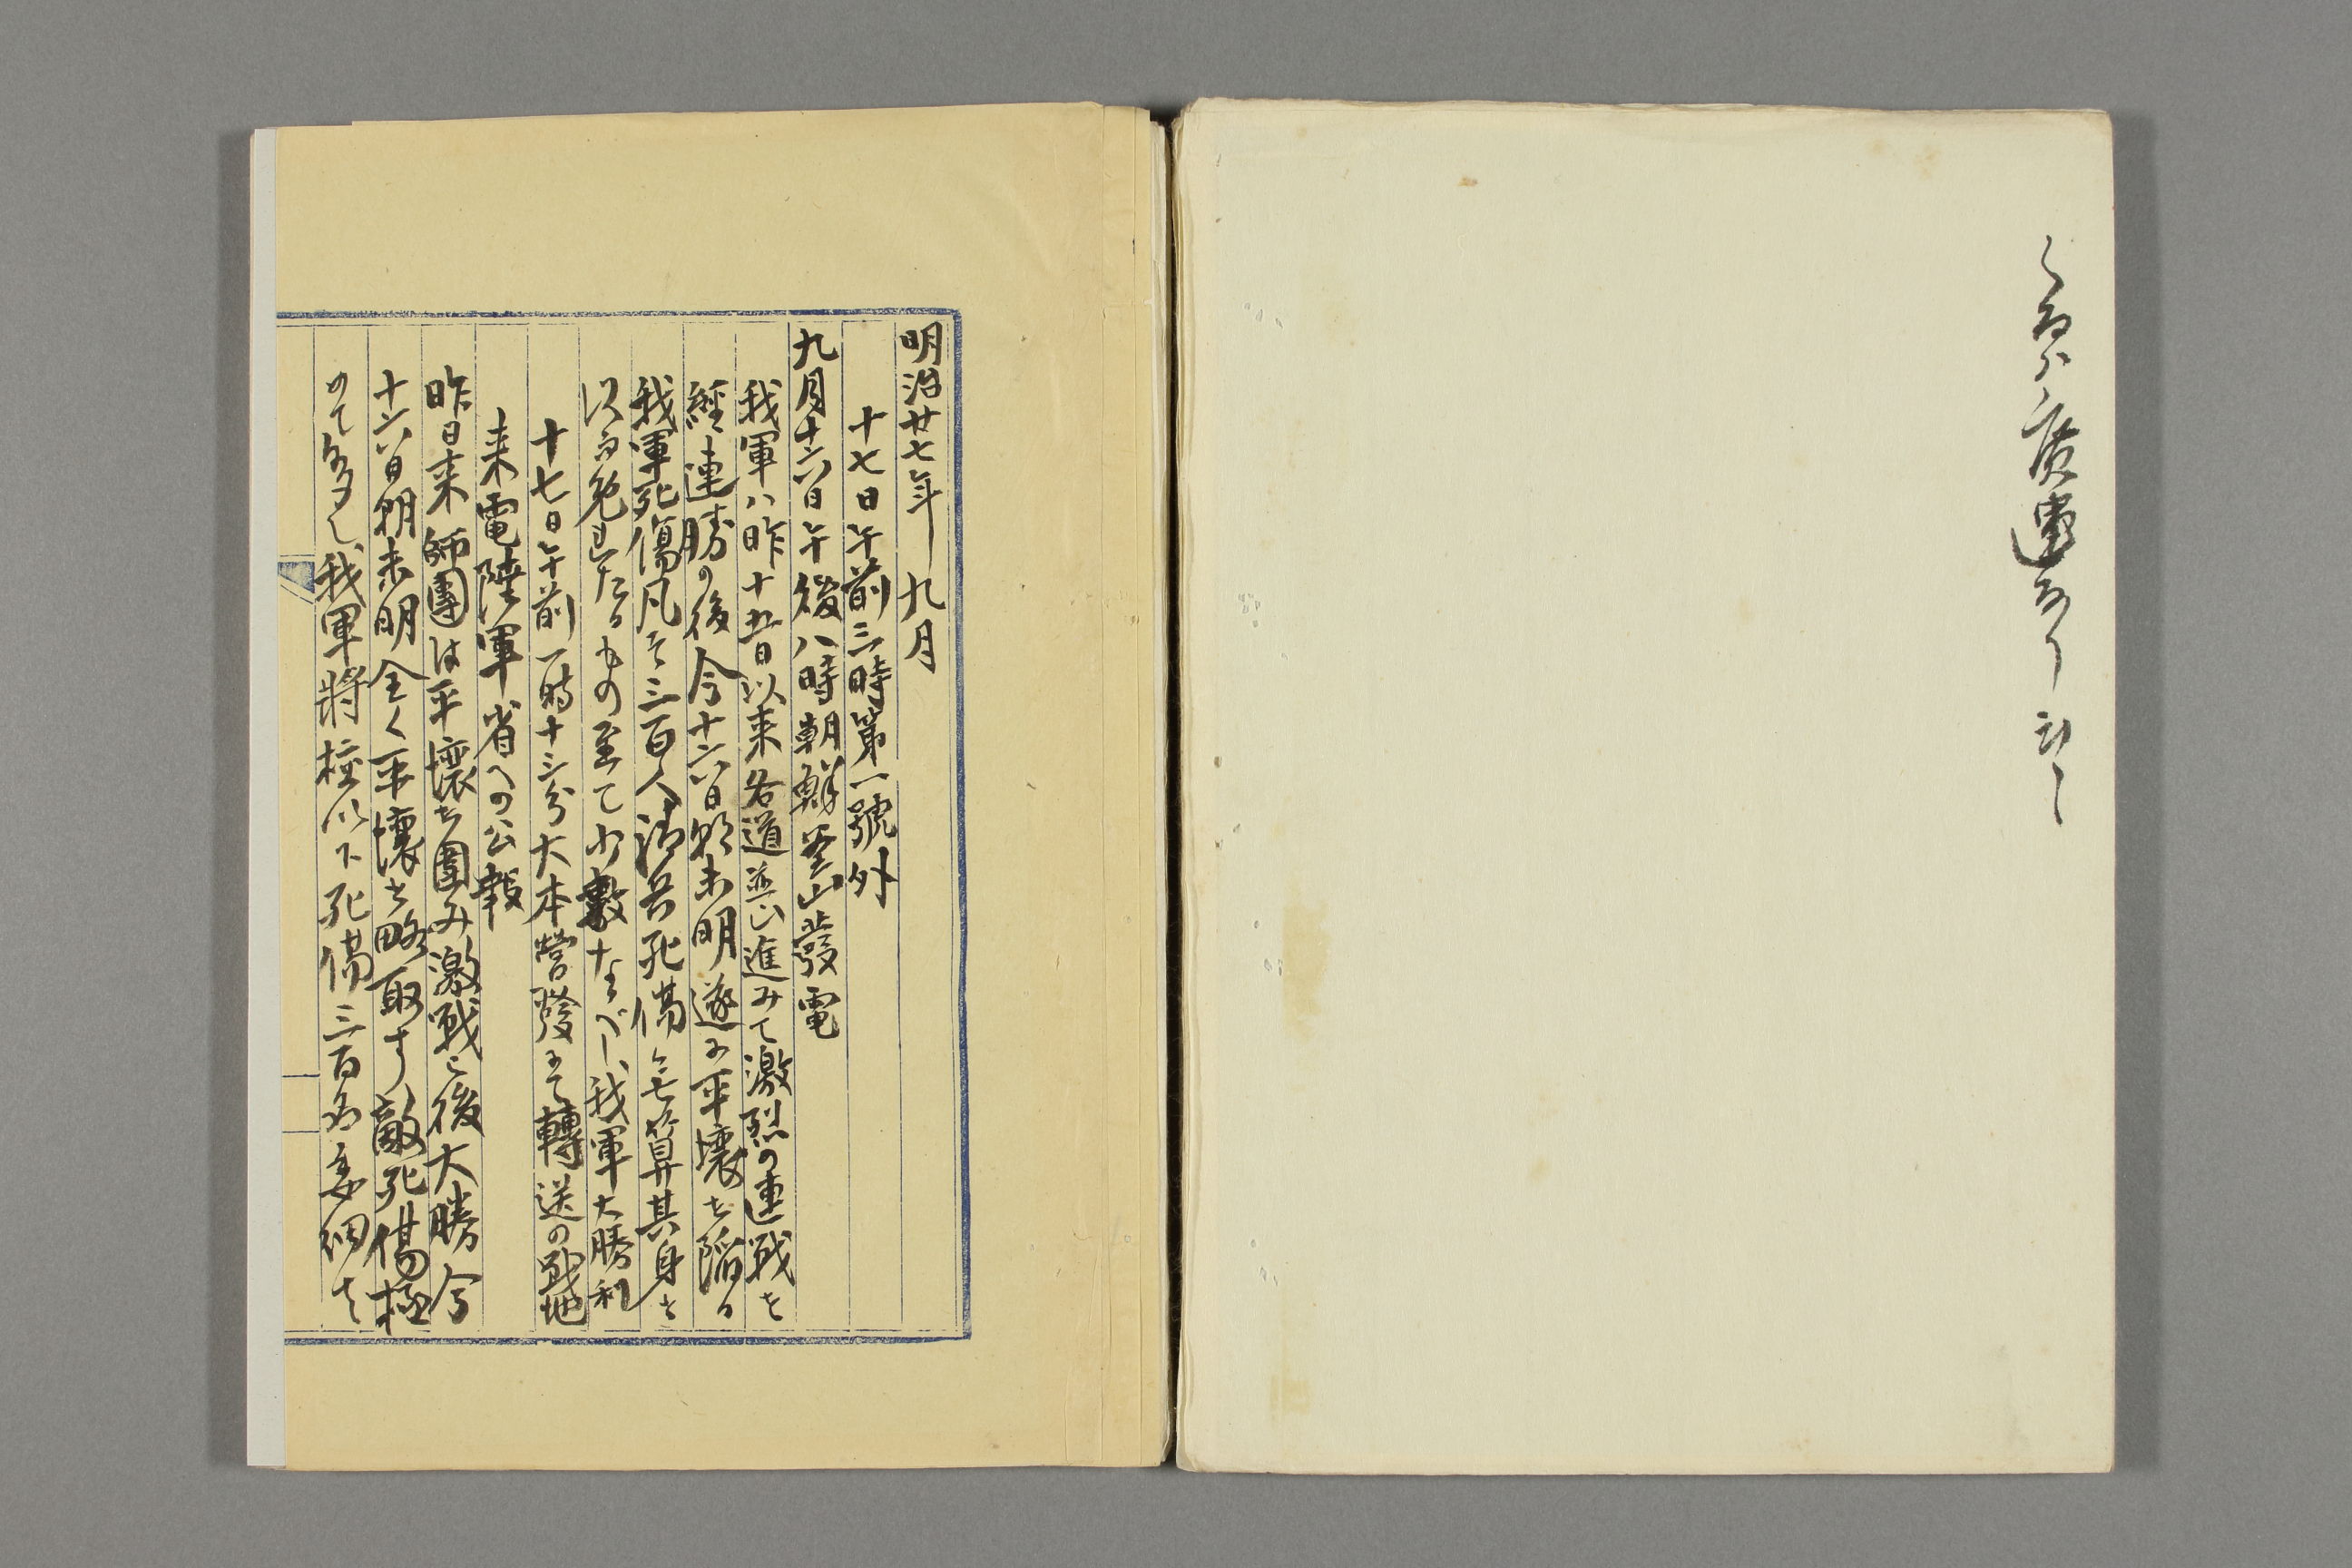 明治廿七年九月
十七日午前三時第一號外
九月十六日午後八時朝鮮釜山發電
我軍ハ昨十五日以来各道並び進みて激烈の連戦を
經連勝の後今十六日朝未明遂に平壌を陥る
我軍死傷凡そ三百人清兵死傷無算其身を
以て免れたるもの至て小數なるべし我軍大勝利
十七日午前一時十三分大本營發にて轉送の戰地
来電陸軍省への公報
昨日来師團は平壌を圍み激戦之後大勝今
十六日朝未明全く平壌を略取す敵死傷極
めて多し我軍將校以下死傷三百名委細は